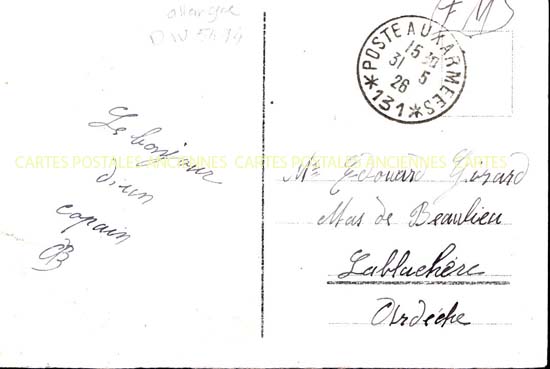 allemagne
FM
POSTE AUX ARMEES
15 30
31 5
26
*131*
Le bonjour
d'un
copain
CARTES POSTALES ANCIENNES CARTES POSTALES ANCIENNES
Mr Edouard
Mas de Beaulieu
Lablachère
Ardèche